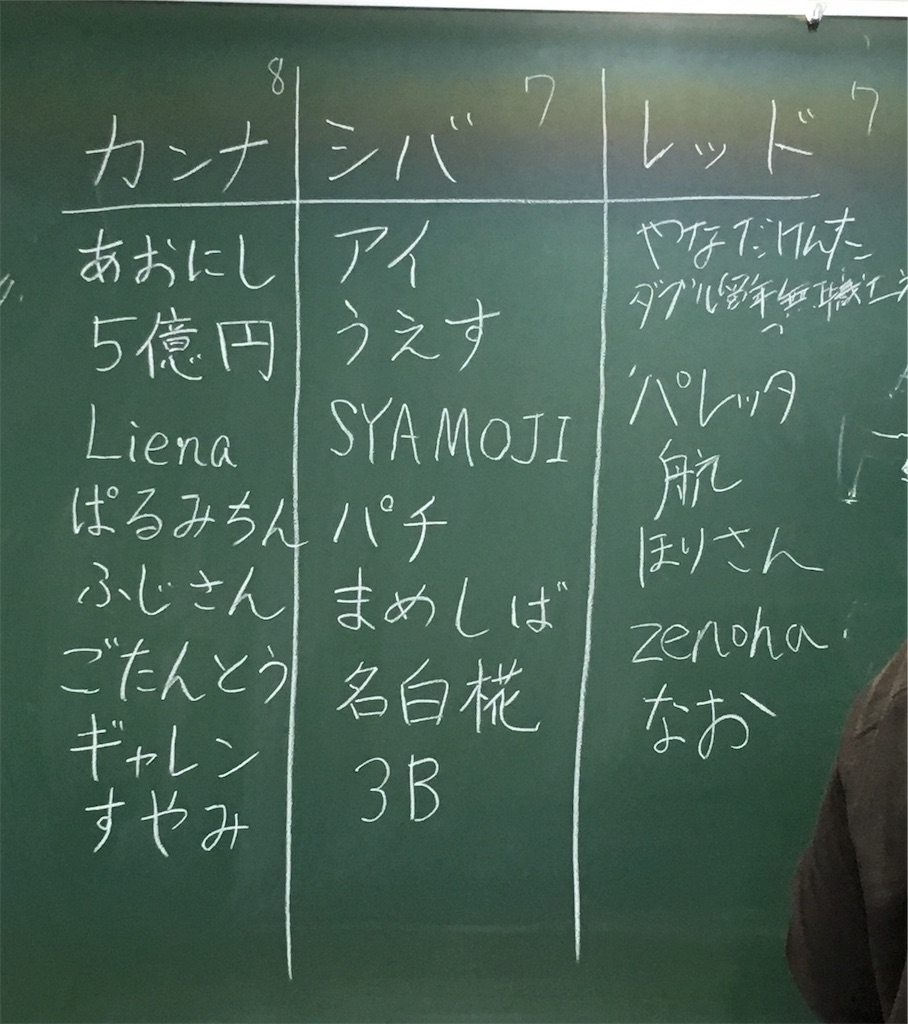 カンナ 8
あおにし
5億円
Liena
ぱるみちん
ふじさん
ごたんとう
ギャレン
すやみ
シバ 7
アイ
うえす
SYAMOJI
パチ
まめしば
名白椛
3B
レッド 7
やなだけんた
ダブル留年無職
パレッタ
航
ほりさん
zenoha
なお